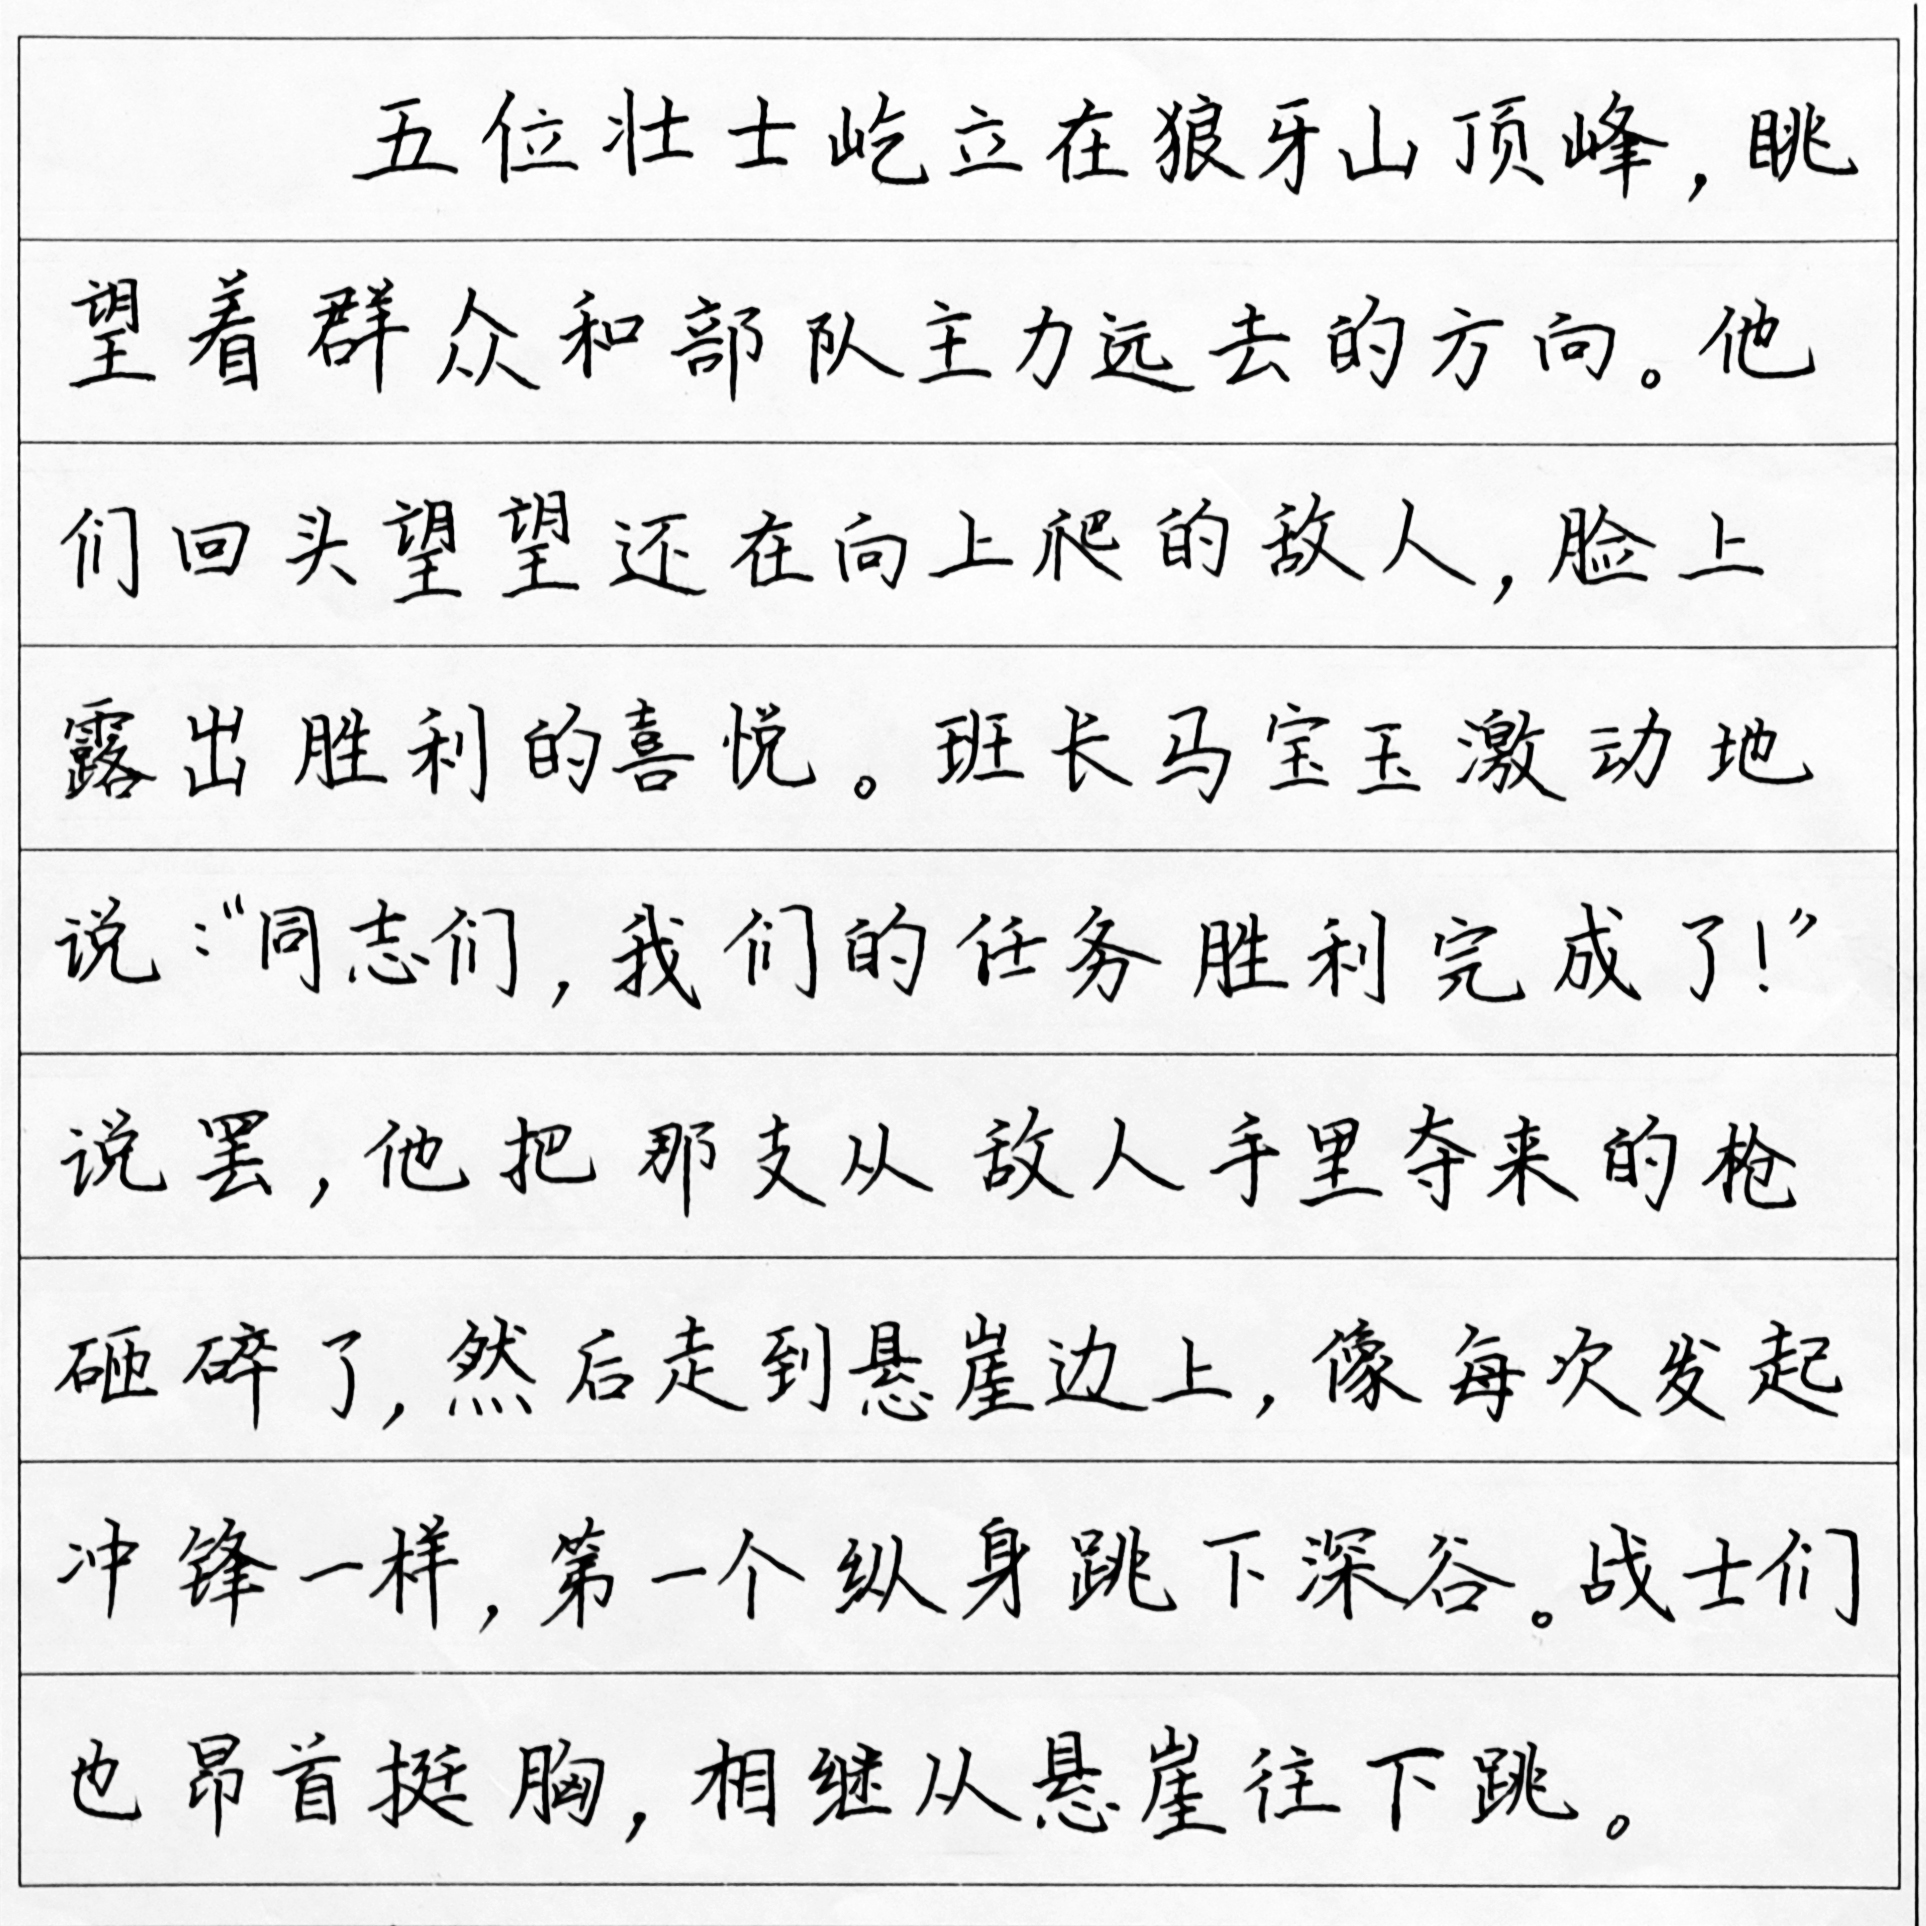 五位壮士屹立在狼牙山顶峰，眺
望着群众和部队主力远去的方向。他
们回头望望还在向上爬的敌人，脸上
露出胜利的喜悦。班长马宝玉激动地
说：“同志们，我们的任务胜利完成了！”
说罢，他把那支从敌人手里夺来的枪
砸碎了，然后走到悬崖边上，像每次发起
冲锋一样，第一个纵身跳下深谷。战士们
也昂首挺胸，相继从悬崖往下跳。